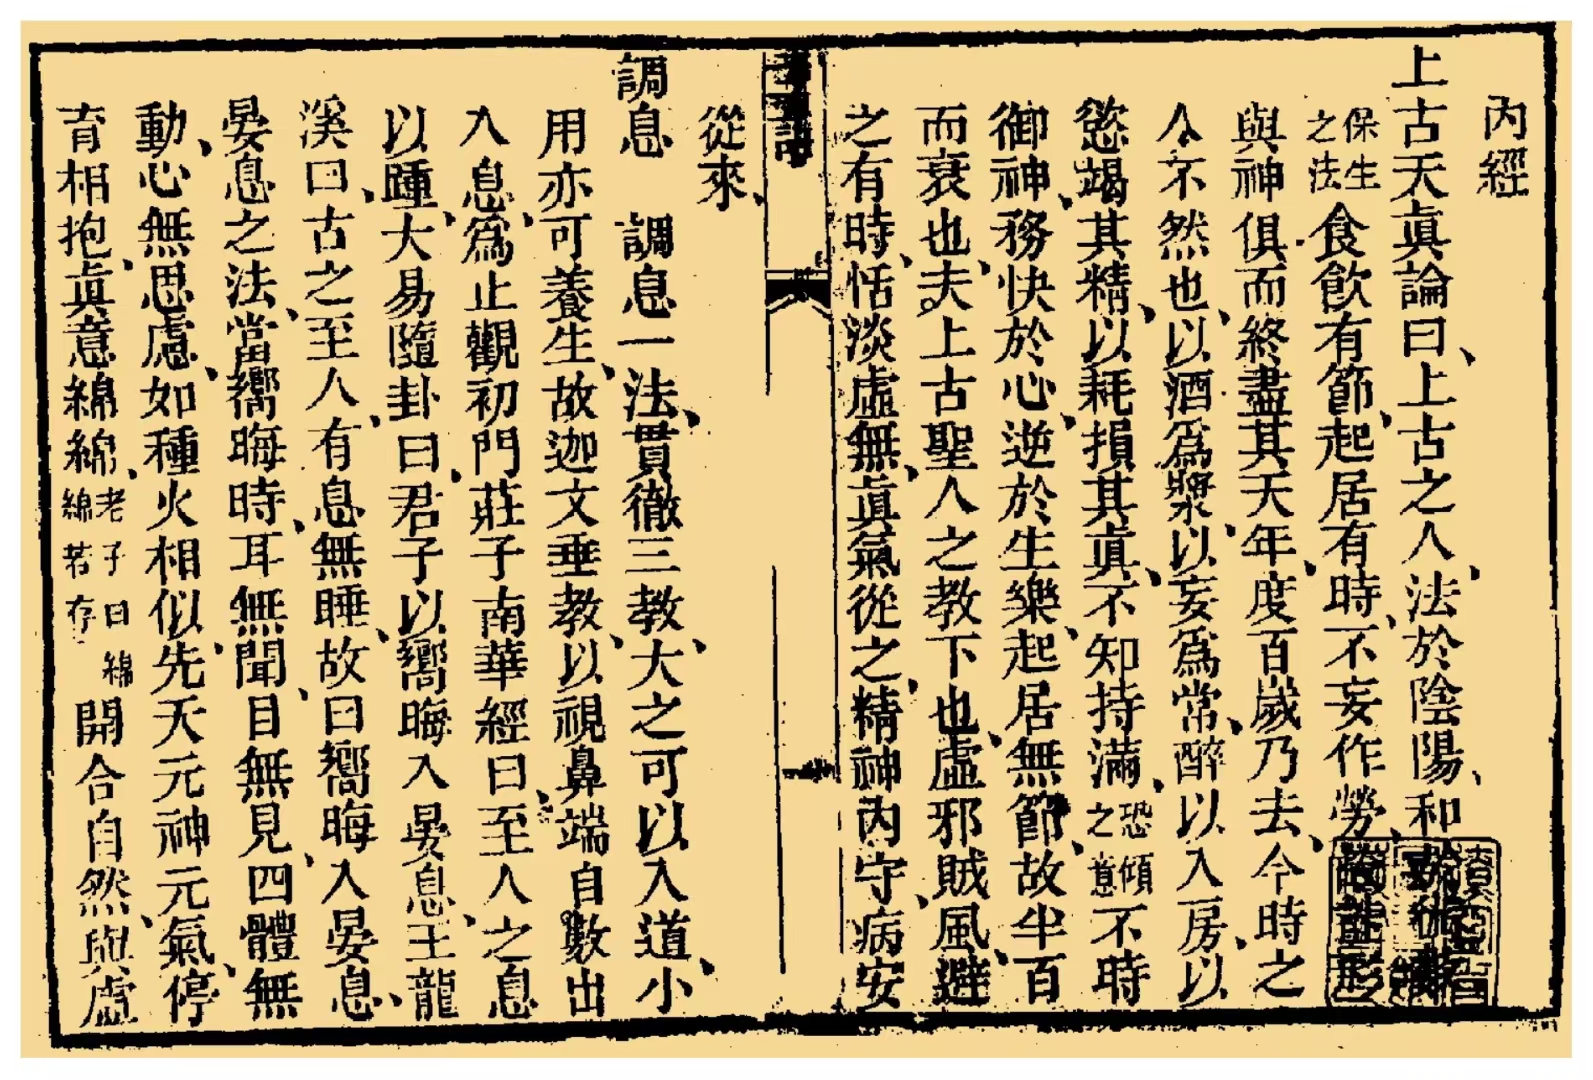 內經
上古天眞論曰、上古之人、法於陰陽、和於術數
保生之法食飲有節、起居有時、不妄作勞、故能形
與神俱而終盡其天年、度百歲乃去、今時之
人不然也、以酒爲漿、以妄爲常、醉以入房、以
慾竭其精、以耗損其眞、不知持滿、恐傾之意不時
御神、務快於心、逆於生樂、起居無節、故半百
而衰也、夫上古聖人之教下也、虛邪賊風、避
之有時、恬淡虛無、眞氣從之、精神內守、病安
從來、
調息 調息一法、貫徹三教、大之可以入道、小
用亦可養生、故迦文垂教、以視鼻端自數出
入息、爲止觀初門莊子南華經曰、至人之息
以踵、大易隨卦曰、君子以嚮晦入晏息、王龍
溪曰、古之至人、有息無睡、故曰嚮晦入晏息、
晏息之法、當嚮晦時、耳無聞、目無見、四體無
動、心無思慮、如種火相似、先天元神元氣、停
育相抱、眞意綿綿、老子曰綿綿若存開合自然、與虛